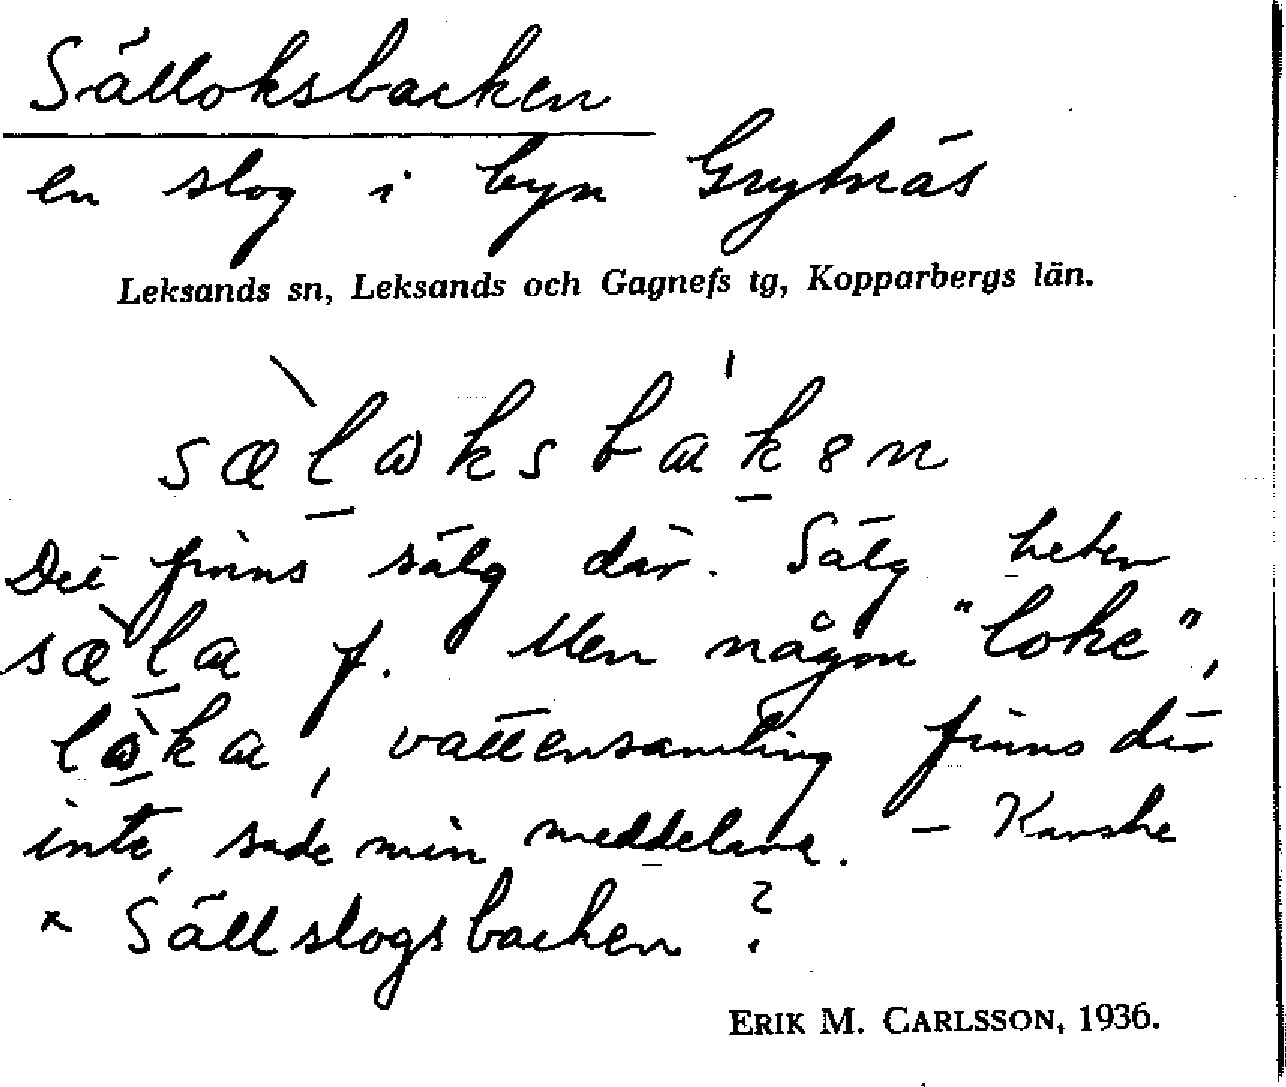 Sälloksbacken
en slog i byn Grytnäs
Leksands sn, Leksands och Gagnefs tg, Kopparbergs län.
sæ̀ḻɷksbaˈḵən
Det finns sälg där. Sälg heter
sæ̀ḻa f. Men någon "loke",
lɷ̱̀ka, vattensamling finns där
inte, sade min meddelare. – Kanske
* Sällslogsbacken ?
ERIK M. CARLSSON, 1936.